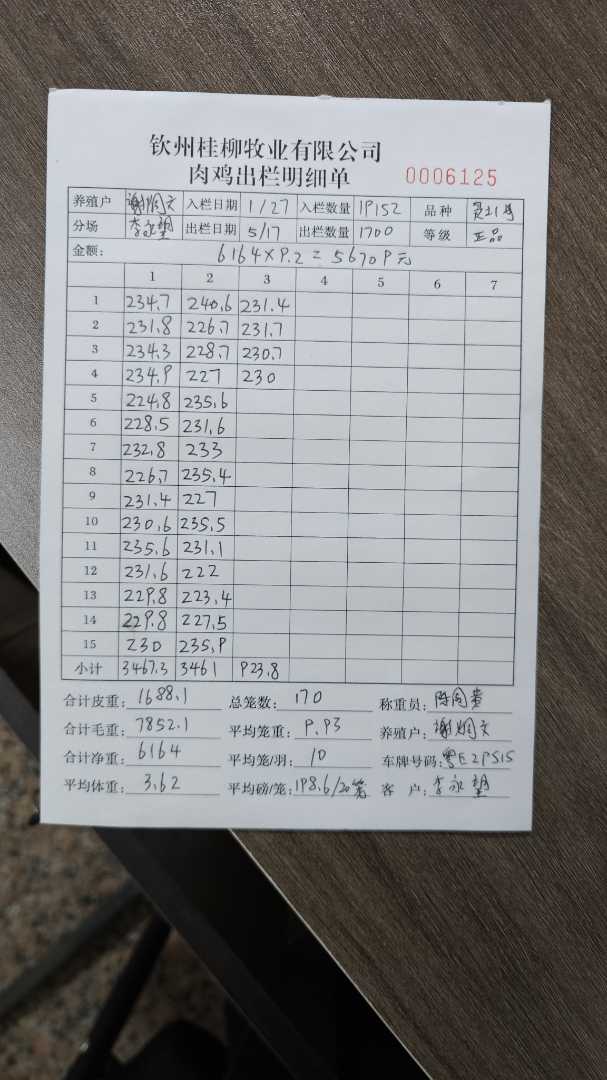 钦州桂柳牧业有限公司
肉鸡出栏明细单 0006125
养殖户 谢炯文 入栏日期 1/27 入栏数量 19152 品种
分场 李永塱 出栏日期 5/17 出栏数量 1700 等级 正品
金额: 6164×9.2=56709元
1 2 3 4 5 6 7
1 234.7 240.6 231.4
2 231.8 226.7 231.7
3 234.3 228.7 230.7
4 234.9 227 230
5 224.8 235.6
6 228.5 231.6
7 232.8 233
8 226.7 235.4
9 231.4 227
10 230.6 235.5
11 235.6 231.1
12 231.6 222
13 229.8 223.4
14 229.8 227.5
15 230 235.9
小计 3467.3 3461 923.8
合计皮重: 1688.1 总笼数: 170 称重员:
合计毛重: 7852.1 平均笼重: 9.93 养殖户: 谢炯文
合计净重: 6164 平均笼/羽: 10 车牌号码: 粤E29515
平均体重: 3.62 平均磅/笼: 198.6/20笼 客户: 李永塱